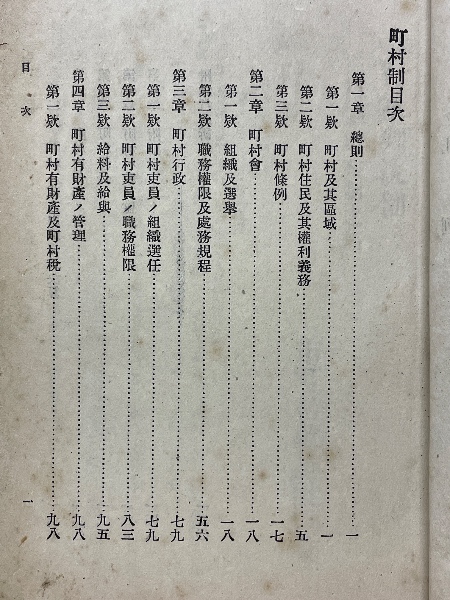 町村制目次
第一章 總則……一
第一欵 町村及其區域……一
第二欵 町村住民及其權利義務……五
第三欵 町村條例……一七
第二章 町村會……一八
第一欵 組織及選擧……一八
第二欵 職務權限及處務規程……五六
第三章 町村行政……七九
第一欵 町村吏員ノ組織選任……七九
第二欵 町村吏員ノ職務權限……八三
第三欵 給料及給與……九五
第四章 町村有財產ノ管理……九八
第一欵 町村有財產及町村稅……九八
目次
一